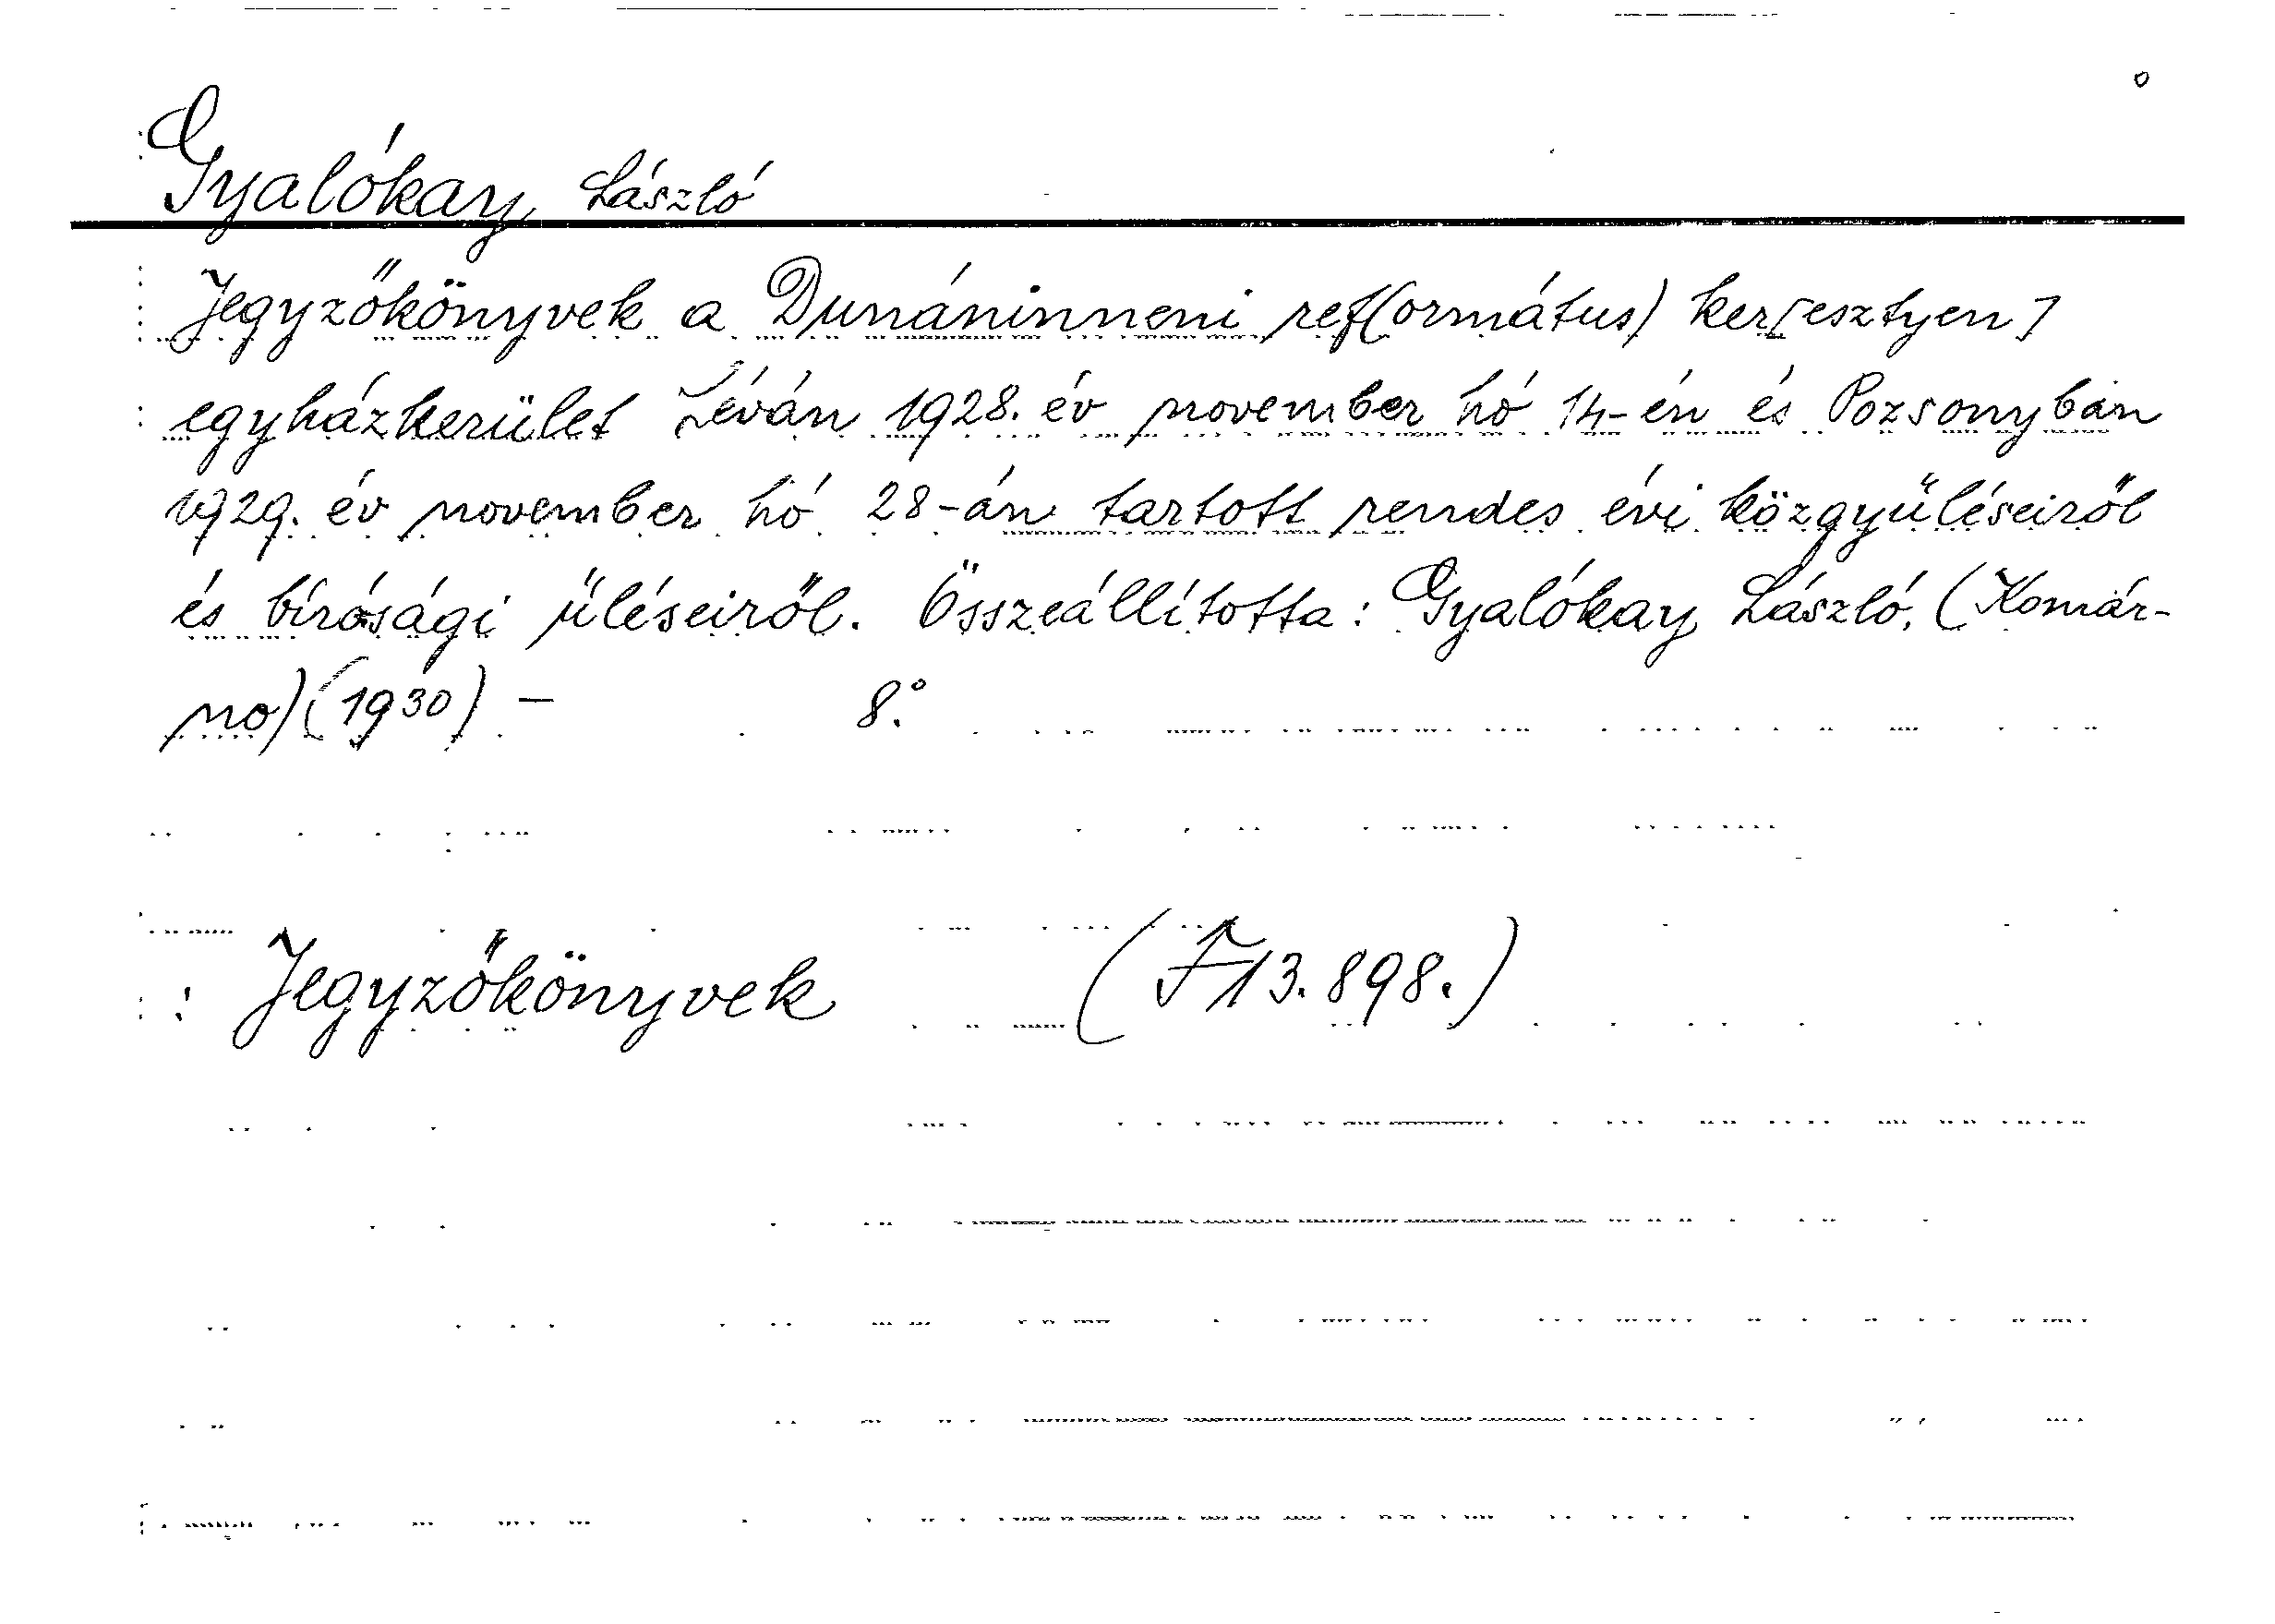 Gyalókay László
Jegyzőkönyvek a Dunáninneni ref(ormátus) ker[esztyen]
egyházkerület Léván 1928. év november hó 14-én és Pozsonyban
1929. év november hó 28-án tartott rendes évi közgyűléseiről
és bírósági üléseiről. Összeállította: Gyalókay László. (Komár-
no)(1930) – 8°.
: Jegyzőkönyvek (F13.898.)